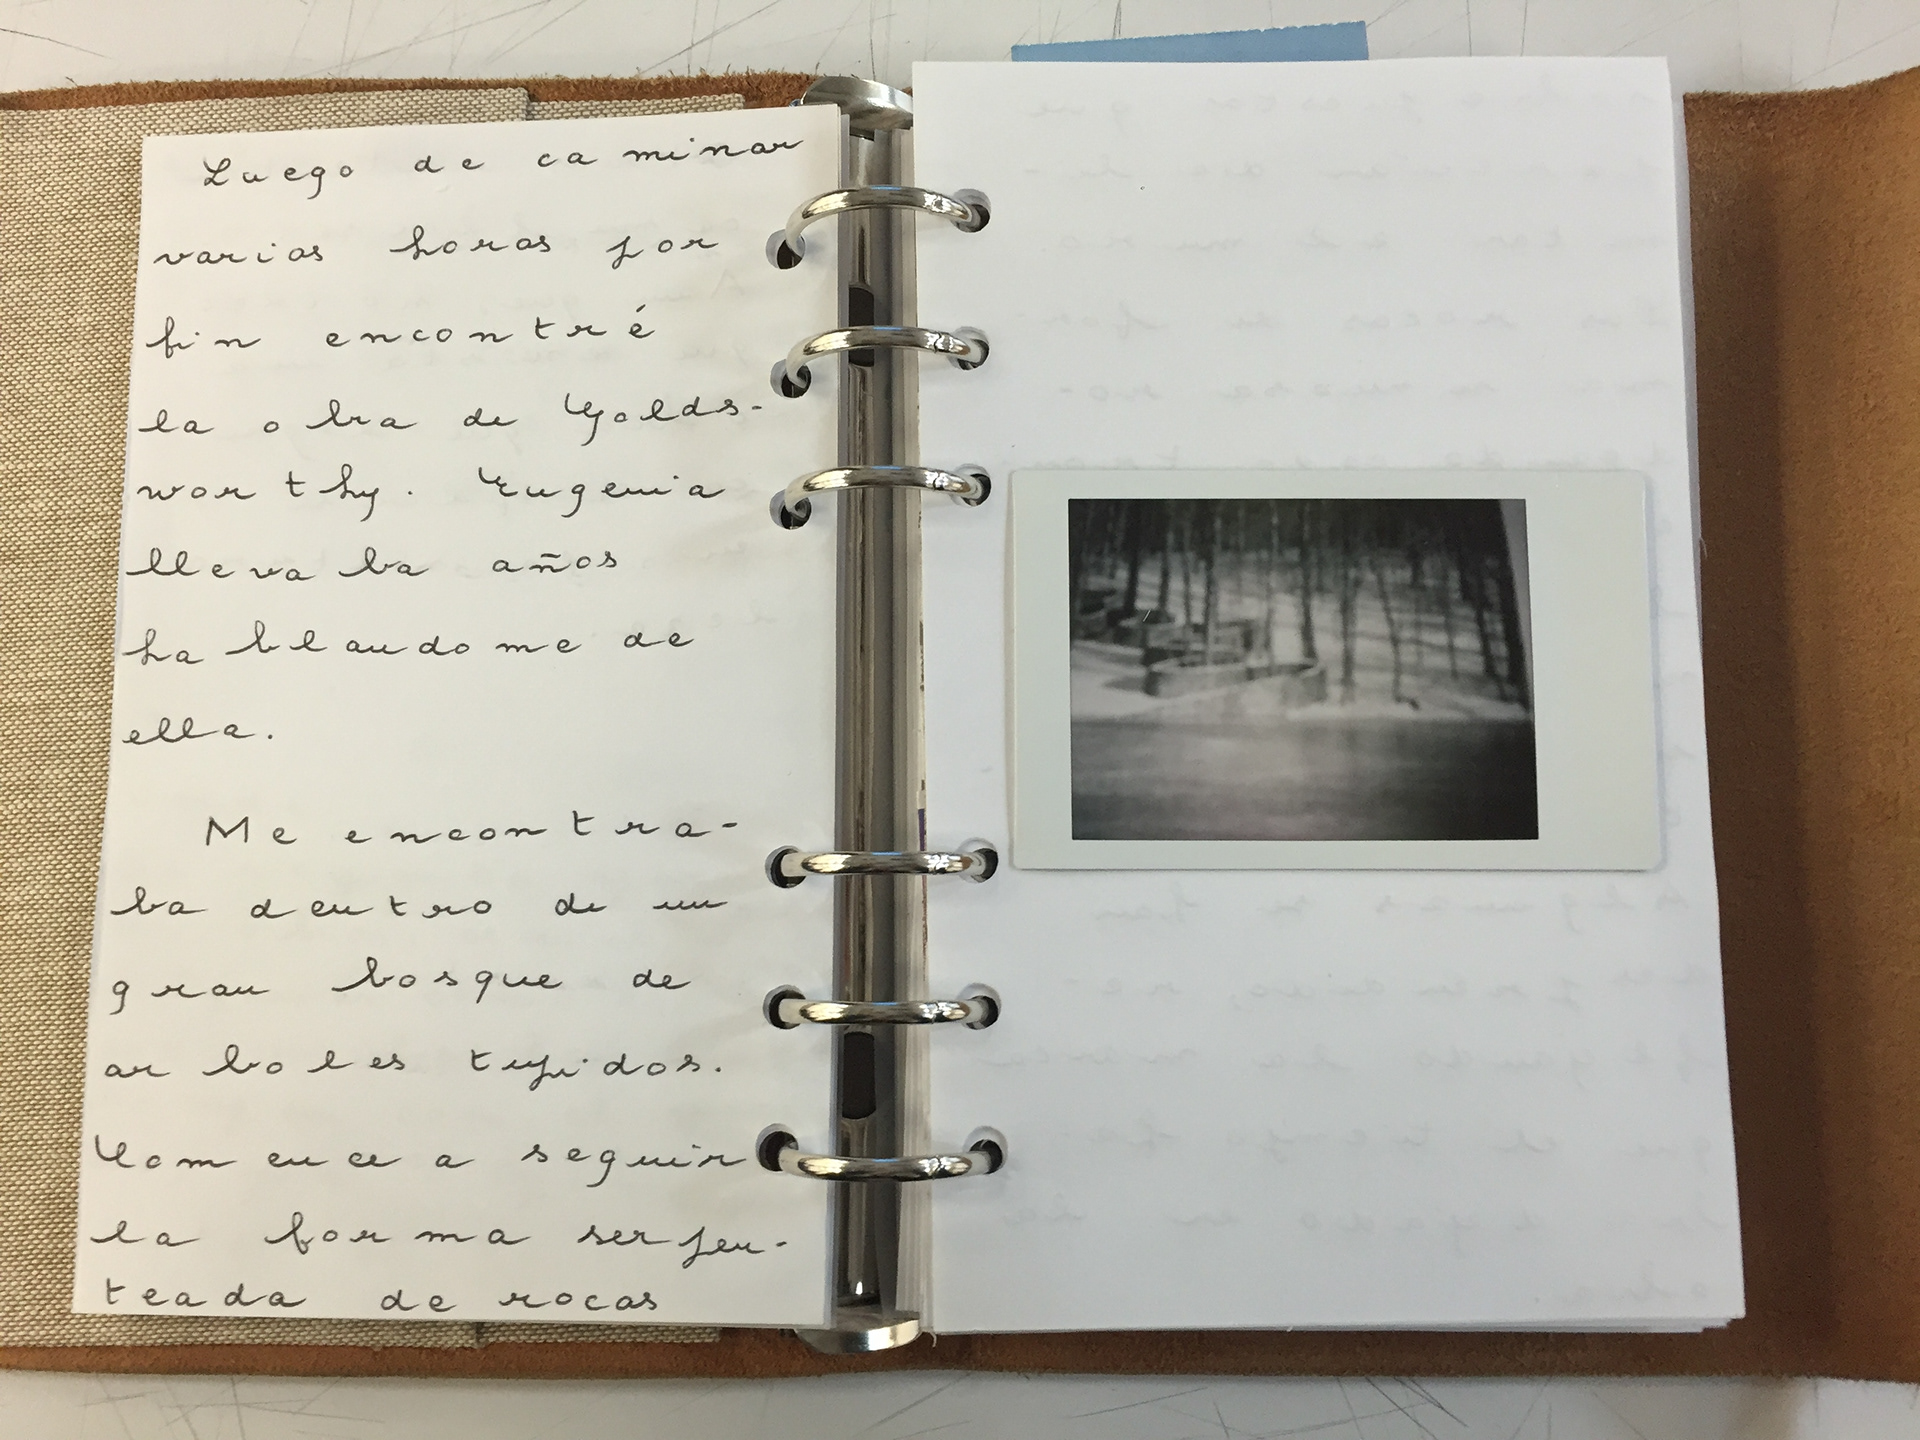 Luego de caminar
varias horas por
fin encontré
la obra de Golds-
worthy. Eugenia
llevaba años
hablandome de
ella.
Me encontra-
ba dentro de un
gran bosque de
arboles tupidos.
Comence a seguir
la forma serpen-
teada de rocas